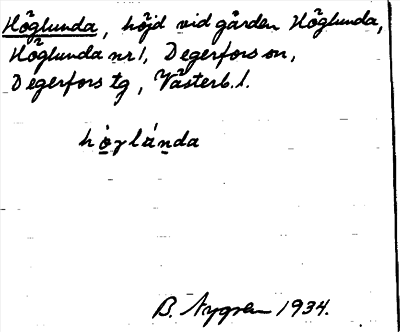 Höglunda, höjd vid gården Höglunda,
Höglunda nr 1, Degerfors sn,
Degerfors tg, Västerb. l.
hö̀glánda
B. Nygren 1934.